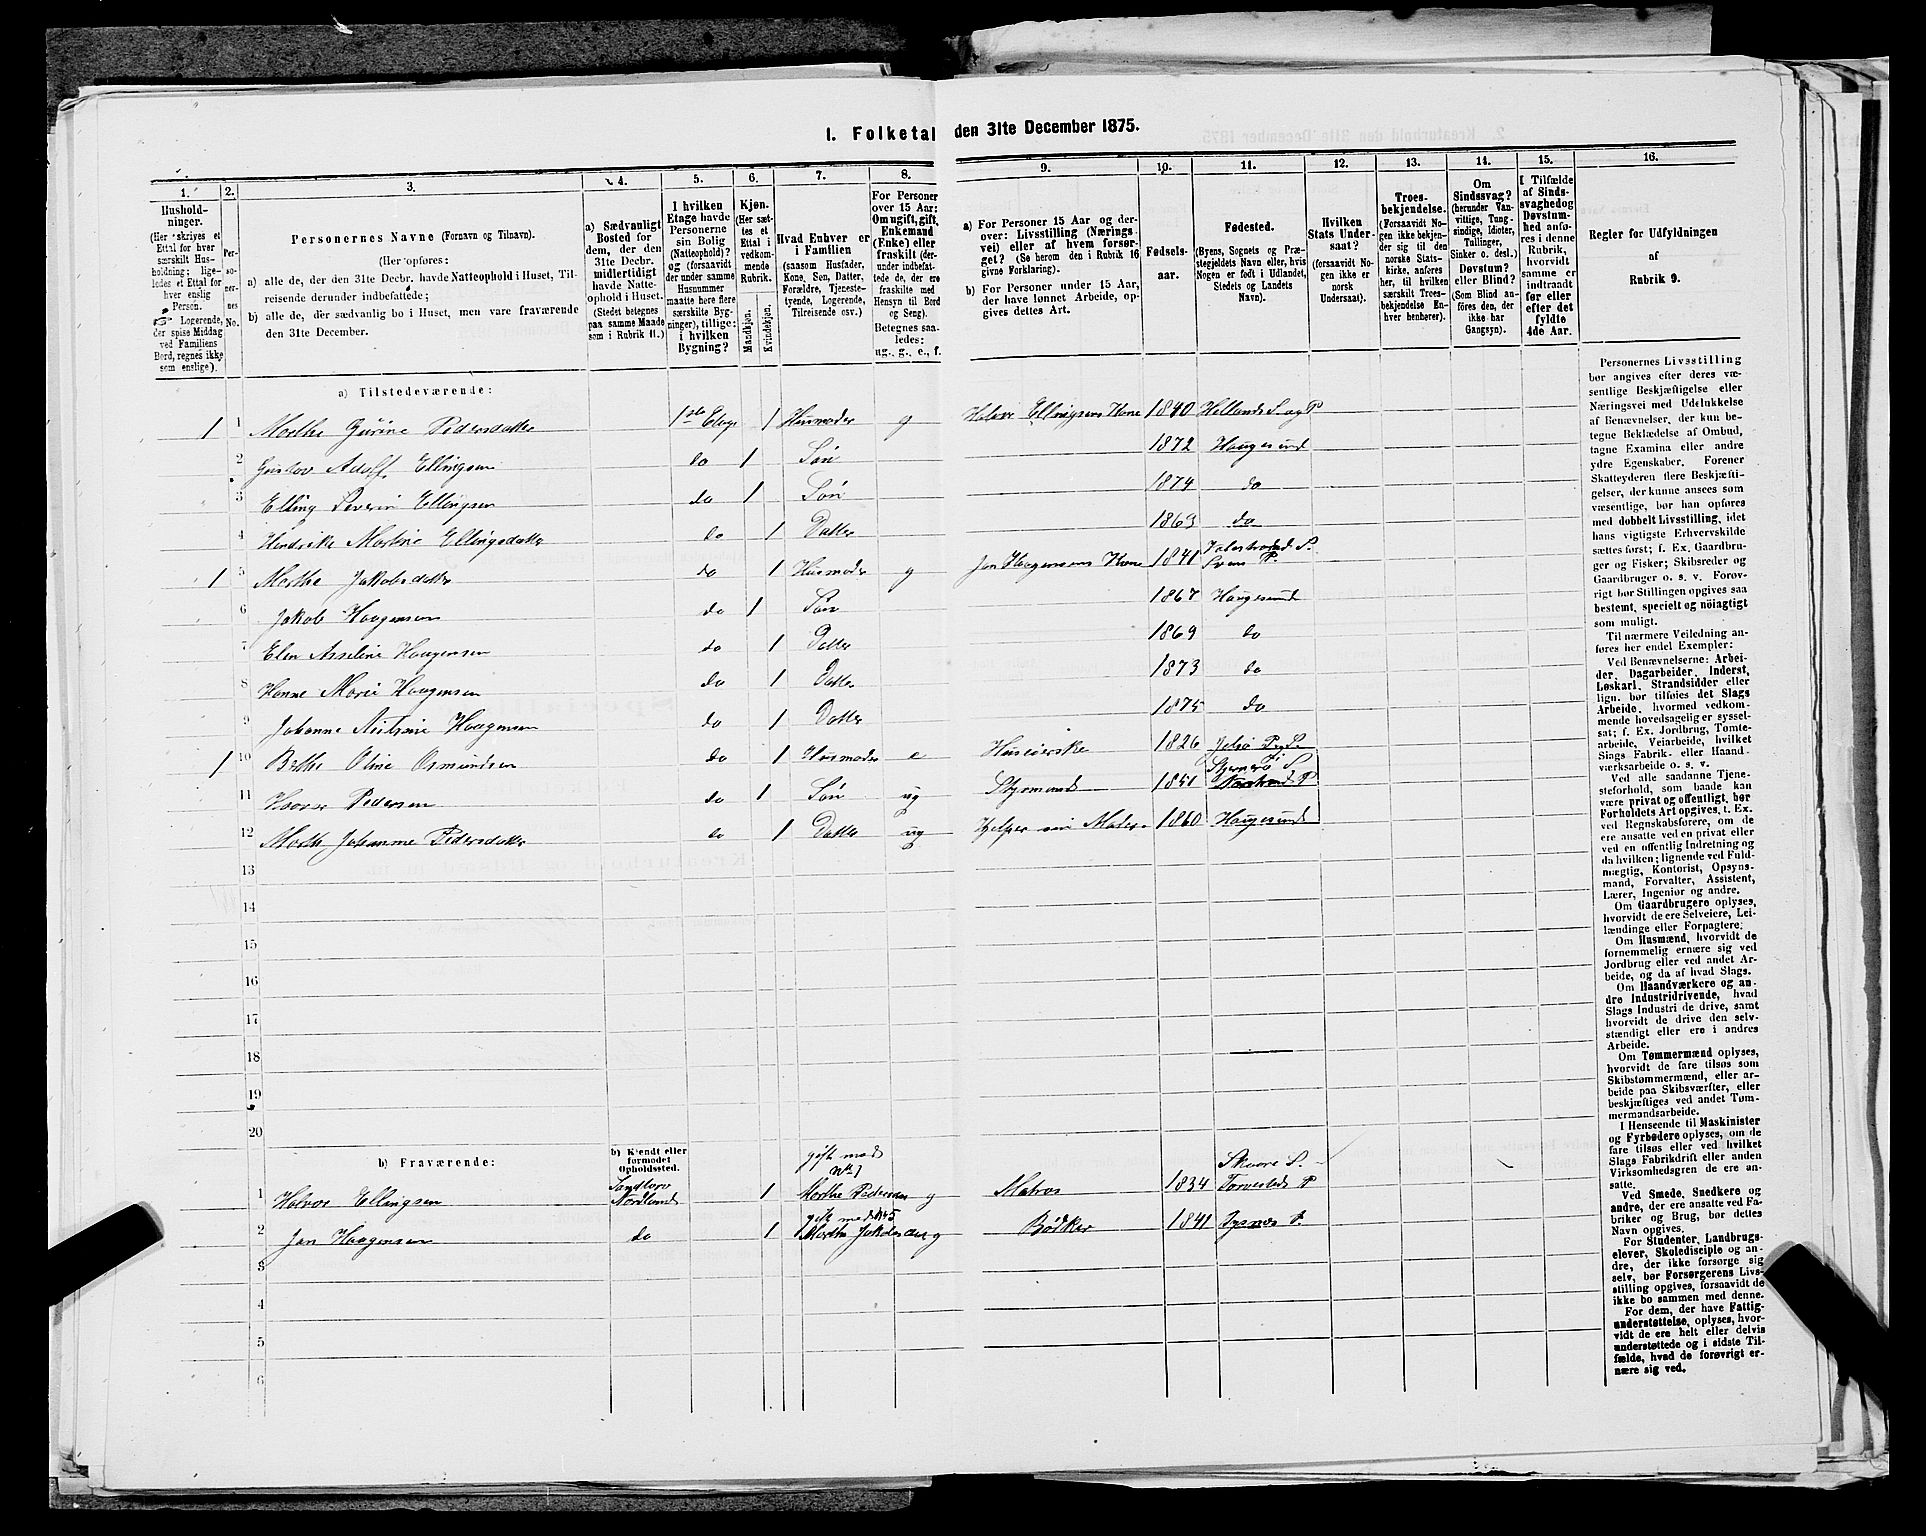 1. Folketal den 31te December 1875.
1. 2. 3. 4. 5. 6. 7. 8. 9. 10. 11. 12. 13. 14. 15. 16.
Hushold-
ninger.
(Her skrives et
Ettal for hver
særskilt Hus-
holdning; lige-
ledes et Ettal for
hver enslig
Person.
Logerende,
der spise Middag
ved Familiens
Bord, regnes ikke
som enslige).
Per-
so-
ner-
nes
No.
Personernes Navne (Fornavn og Tilnavn).
(Her opføres:
a) alle de, der den 31te Decbr. havde Natteophold i Huset, Til-
reisende derunder indbefattede;
b) alle de, der sædvanlig bo i Huset, men vare fraværende
den 31te December.
a) Sædvanligt
Bosted for
dem, der den
31te Decbr.
midlertidigt
havde Natte-
ophold i Huset.
(Stedet betegnes
paa samme Maade
som i Rubrik 11.)
I hvilken
Etage havde
Personerne
sin Bolig
(Natteophold)?
og (forsaavidt
der under samme
Husnummer
maatte høre flere
særskilte Byg-
ninger), tillige:
i hvilken
Bygning?
Kjøn.
(Her sæt-
tes et
Ettal i
vedkom-
mende
Rubrik.
Mandkjøn.
Kvindekjøn.
Hvad Enhver er
i Familien
(saasom Husfader,
Kone, Søn, Datter,
Forældre, Tjeneste-
tyende, Logerende,
Tilreisende osv.)
For Personer
over 15 Aar:
Om ugift, gift,
Enkemand
(Enke) eller
fraskilt (der-
under indbefat-
tede de, der ere
fraskilte med
Hensyn til Bord
og Seng).
Betegnes saa-
ledes:
ug., g., e., f.
a) For Personer 15 Aar og der-
over: Livsstilling (Nærings-
vei) eller af hvem forsør-
get? (Se herom den i Rubrik 16
givne Forklaring).
b) For Personer under 15 Aar,
der have lønnet Arbeide, op-
gives dettes Art.
Fødsels-
aar.
Fødested.
(Byens, Sognets og Præ-
stegjeldets Navn eller, hvis
Nogen er født i Udlandet,
Stedets og Landets
Navn).
Hvilken
Stats Under-
saat?
(forsaavidt No-
gen ikke er
norsk
Undersaat).
Troes-
bekjendelse.
(Forsaavidt No-
gen ikke bekjen-
der sig til den
norske Stats-
kirke, anføres
her, til hvilken
særskilt Troes-
bekjendelse En-
hver henhører).
Om
Sindssvag?
(herunder Van-
vittige, Tung-
sindige, Idioter,
Tullinger,
Sinker o. desl.)
Døvstum?
eller Blind?
(Som Blind an-
føres den, der
ikke har
Gangsyn).
I Tilfælde
af Sinds-
svaghed og
Døvstum-
hed anfø-
res i denne
Rubrik,
hvorvidt
samme er
indtraadt
før eller
efter det
fyldte
4de Aar.
Regler for Udfyldningen
af
Rubrik 9.
a) Tilstedeværende:
1 1 Marthe Gurine Pedersdatter 1ste Etage 1 Husmoder g Halvor Ellingsens Kone 1840 Hellands S. og P
2 Gustav Adolf Ellingsen do 1 Søn 1872 Haugesund
3 Elling Severin Ellingsen do 1 Søn 1874 do
4 Hendrikke Martine Ellingsdatter do 1 Datter 1863 do
1 5 Marthe Jakobsdatter do 1 Husmoder g Jan Haagensens Kone 1841 Valestrand S. Sveens P.
6 Jakob Haagensen do 1 Søn 1867 Haugesund
7 Elen Asseline Haagensen do 1 Datter 1869 do
8 Hanne Marie Haagensen do 1 Datter 1873 do
9 Johanne Haagensen do 1 Datter 1875 do
1 10 Berthe Oline Osmundsen do 1 Husmoder e Huseierske 1826 Jelsø P. S.
11 Pedersen do 1 Søn ug Styrmand 1851 Stjernerø S. Nærstrand P.
12 Marthe Johanne Pedersdatter do 1 Datter ug Hjelper sin Moder 1860 Haugesund
13
14
15
16
17
18
19
20
b) Fraværende:
b) Kjendt eller
formodet
Opholdssted.
1 Halvor Ellingsen Sandtorv Nordland 1 gift med No 1 Marthe Pedersen g Matros 1834 Skaare S. Torvestads P
2 Jan Haagensen do 1 gift med No 5 Marthe Jakobsen g Bødker 1841 Tysnæs P.
3
4
5
6
Personernes Livsstilling
bør angives efter deres væ-
sentlige Beskjæftigelse eller
Næringsvei med Udelukkelse
af Benævnelser, der kun be-
tegne Beklædelse af Ombud,
tagne Examina eller andre
ydre Egenskaber. Forener
Skatteyderen flere Beskjæfti-
gelser, der kunne ansees som
væsentlige, bør han opføres
med dobbelt Livsstilling, idet
hans vigtigste Erhvervskilde
sættes først; f. Ex. Gaardbru-
ger og Fisker; Skibsreder og
Gaardbruger o. s. v. Forøv-
rigt bør Stillingen opgives saa
bestemt, specielt og nöiagtigt
som muligt.
Til nærmere Veiledning an-
føres her endel Exempler:
Ved Benævnelserne: Arbei-
der, Dagarbeider, Inderst,
Løskarl, Strandsidder eller
lign. bør tilføies det Slags
Arbeide, hvormed vedkom-
mende hovedsagelig er syssel-
sat; f. Ex. Jordbrug, Tømte-
arbeide, Veiarbeide, hvilket
Slags Fabrik- eller Haand-
værksarbeide o. s. v.
Ved alle saadanne Tjene-
steforhold, som baade kan
være privat og offentligt, bør
Forholdets Art opgives, t. Ex.
ved Regnskabsførere, om de
ere ansatte ved en privat eller
ved en offentlig Indretning og
da hvilken; lignende ved Fuld-
mægtig, Kontorist, Opsyns-
mand, Forvalter, Assistent,
Lærer, Ingeniør og andre.
Om Gaardbrugere oplyses,
hvorvidt de ere Selveiere, Lei-
lændinge eller Forpagtere;
Om Husmænd, hvorvidt de
fornemmelig ernære sig ved
Jordbrug eller ved andet Ar-
beide, og da af hvad Slags.
Om Haandværkere og an-
dre Industridrivende, hvad
Slags Industri de drive, samt
hvorvidt de drive den selv-
stændigt eller ere i andres
Arbeide.
Om Tømmermænd oplyses,
hvorvidt de fare tilsøs som
Skibstømmermænd, eller ar-
beide paa Skibsværfter, eller
beskjæftiges ved andet Tøm-
mermandsarbeide.
I Henseende til Maskinister
og Fyrbødere oplyses, om de
fare tilsøs eller ved hvilket
Slags Fabrikdrift eller anden
Virksomhedsgren de ere an-
satte.
Ved Smede, Snedkere og
andre, der ere ansatte ved Fa-
briker og Brug, bør dettes
Navn opgives.
For Studenter, Landbrugs-
elever, Skoledisciple og an-
dre, der ikke forsørge sig
selv, bør Forsørgerens Livs-
stilling opgives, forsaavidt de
ikke bo sammen med denne.
For dem, der have Fattig-
understøttelse, oplyses, hvor-
vidt de ere helt eller delvis
understøttede og i sidste Til-
fælde, hvad de forøvrigt er-
nære sig ved.